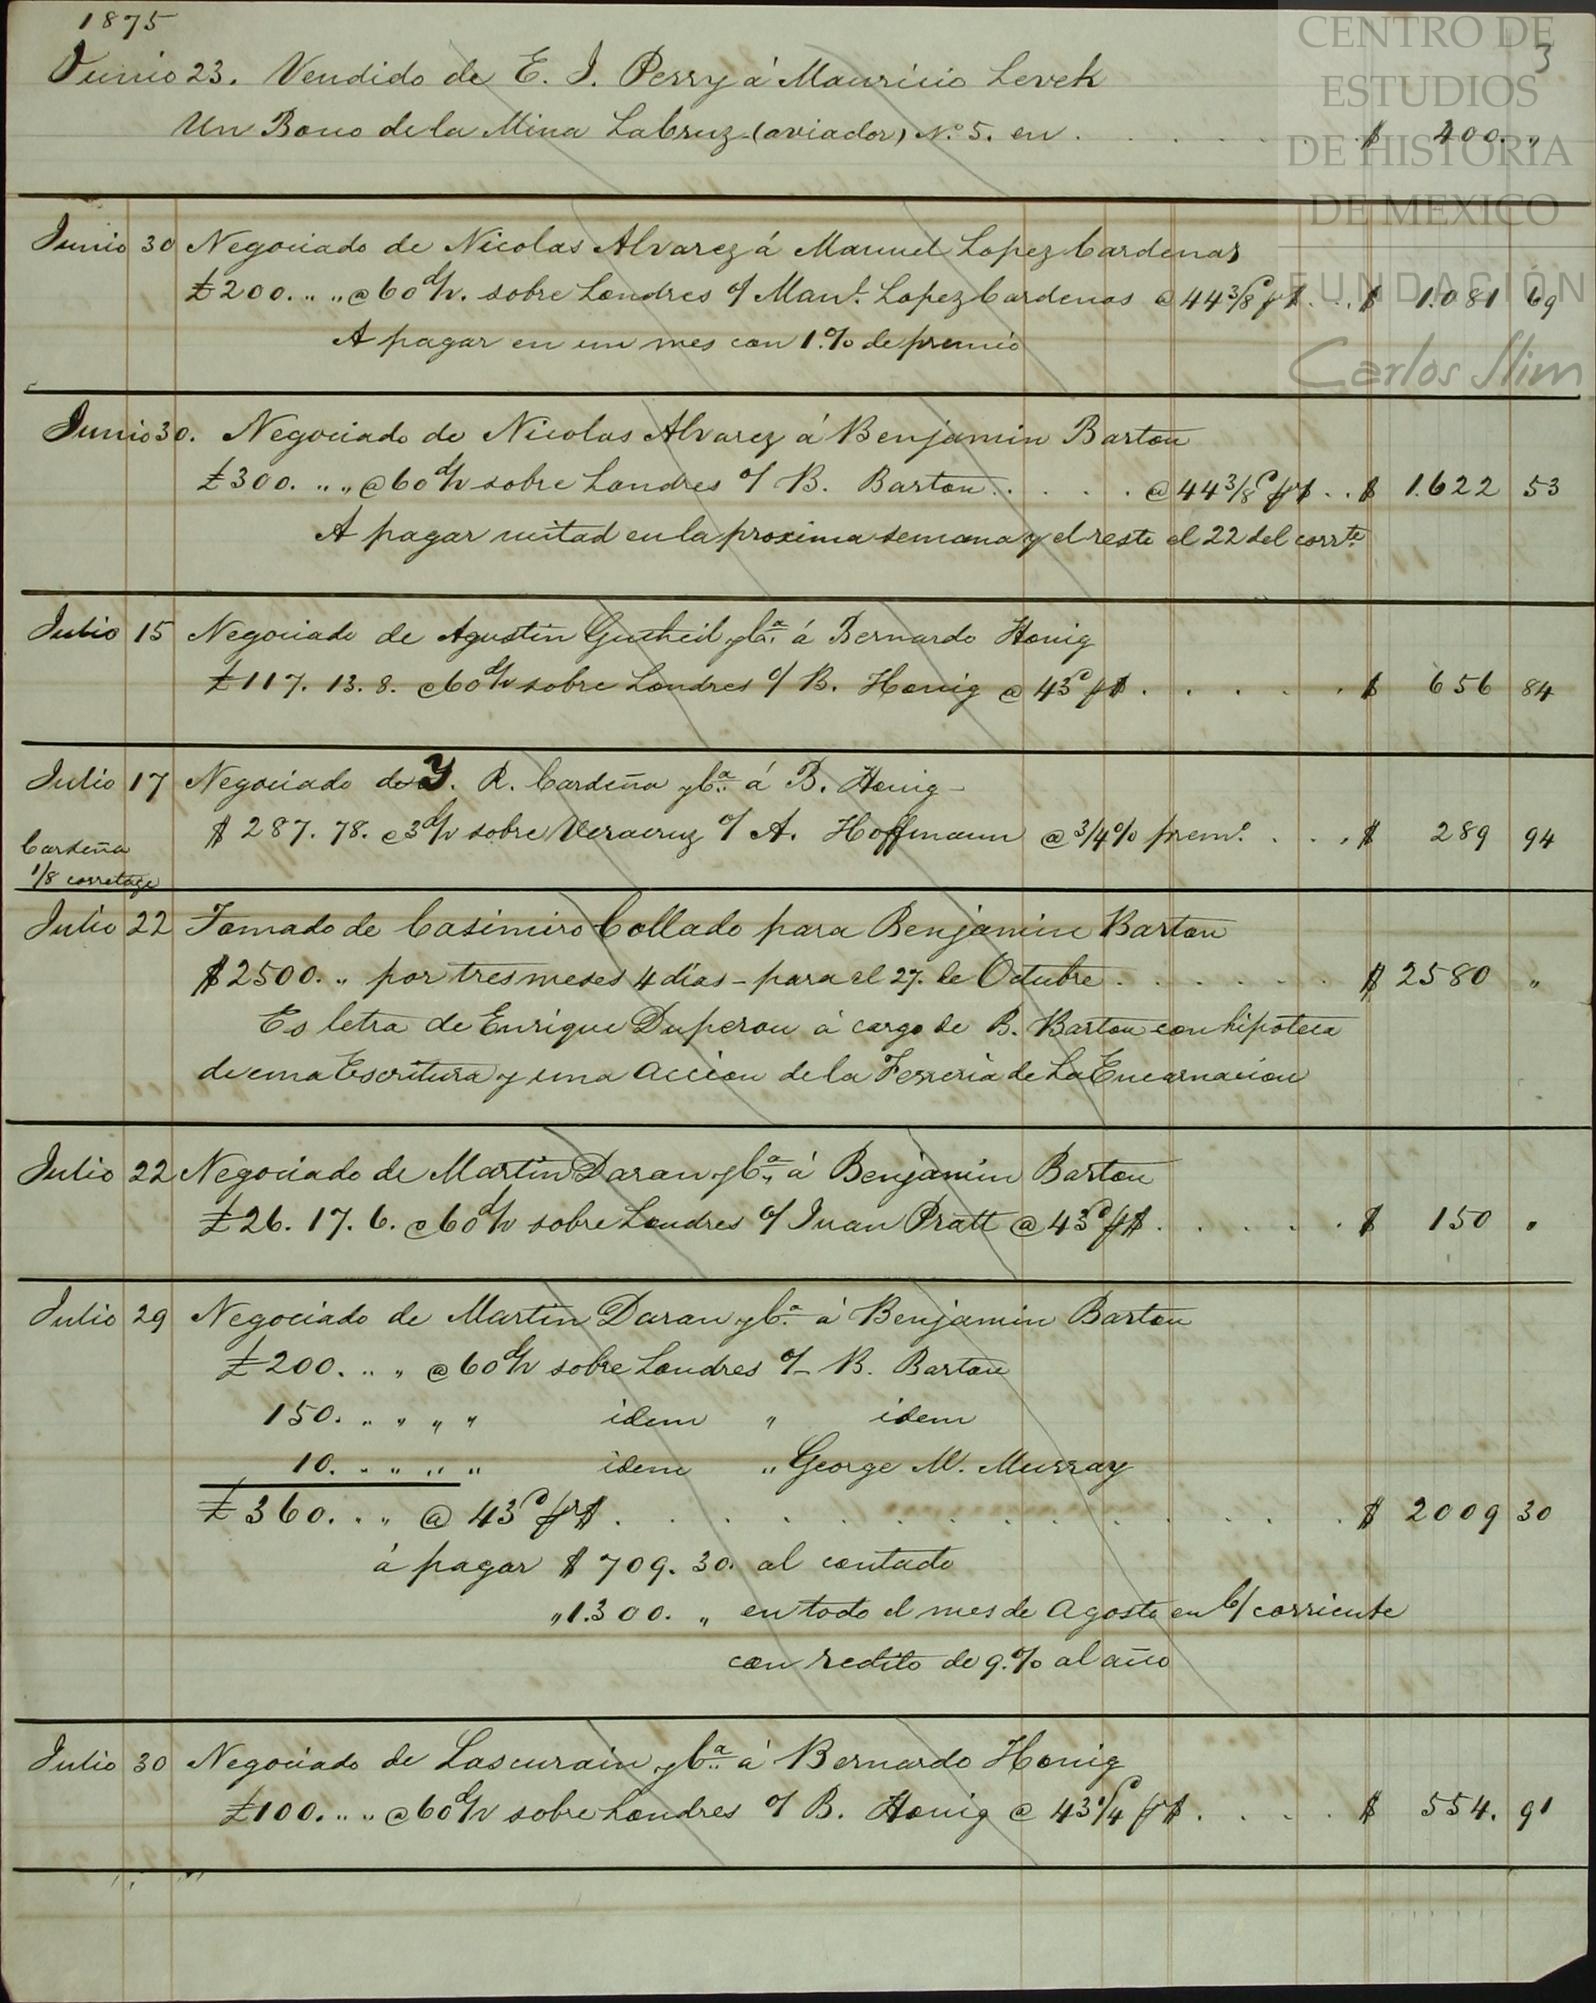 1875
3
Junio 23. Vendido de E. J. Perry á Mauricio Levek
Un Bono de la Mina La Cruz (aviador) N.º 5. en . . . . . . $ 400. "
Junio 30 Negociado de Nicolas Alvarez á Manuel Lopez Cardenas
£200. " " @ 60 d/v. sobre Londres o/ Man.l Lopez Cardenas @ 44 3/8 d p$ . . . $ 1.081 69
A pagar en un mes con 1.% de premio
Junio 30. Negociado de Nicolas Alvarez á Benjamin Barton
£300. " " @ 60 d/v sobre Londres o/ B. Barton . . . . . @ 44 3/8 d p$ . . $ 1.622 53
A pagar mitad en la proxima semana y el resto el 22 del corr.te
Julio 15 Negociado de Agustin Gutheil y Ca. á Bernardo Honig
£117. 13. 8. @ 60 d/v sobre Londres o/ B. Honig @ 43 d p$ . . . . . $ 656 84
Julio 17 Negociado de Y. R. Cardeña y Ca. á B. Honig
$ 287. 78. @ 3 d/v sobre Veracruz o/ A. Hoffmann @ 3/4 % prem.o . . . $ 289 94
Cardeña
1/8 corretage
Julio 22 Tomado de Casimiro Collado para Benjamin Barton
$2500. " por tres meses 4 días - para el 27. de Octubre . . . . . . $ 2580 "
Es letra de Enrique Duperou á cargo de B. Barton con hipoteca
de una Escritura y una accion de la Ferreria de La Encarnacion
Julio 22 Negociado de Martin Daran y Ca. á Benjamin Barton
£26. 17. 6. @ 60 d/v sobre Londres o/ Juan Pratt @ 43 d p$ . . . . . $ 150 "
Julio 29 Negociado de Martin Daran y Ca. á Benjamin Barton
£200. " " @ 60 d/v sobre Londres o/ B. Barton
150. " " " " idem " idem
10. " " " " idem " George M. Murray
£ 360. " " @ 43 d p$ . . . . . . . . . . . . $ 2009 30
á pagar $ 709. 30. al contado
" 1.300. " en todo el mes de Agosto en C/ corriente
con redito de 9.% al año
Julio 30 Negociado de Lascurain y Ca. á Bernardo Honig
£100. " " @ 60 d/v sobre Londres o/ B. Honig @ 43 1/4 d p$ . . . . $ 554. 91
CENTRO DE
ESTUDIOS
DE HISTORIA
DE MEXICO
FUNDACIÓN
Carlos Slim